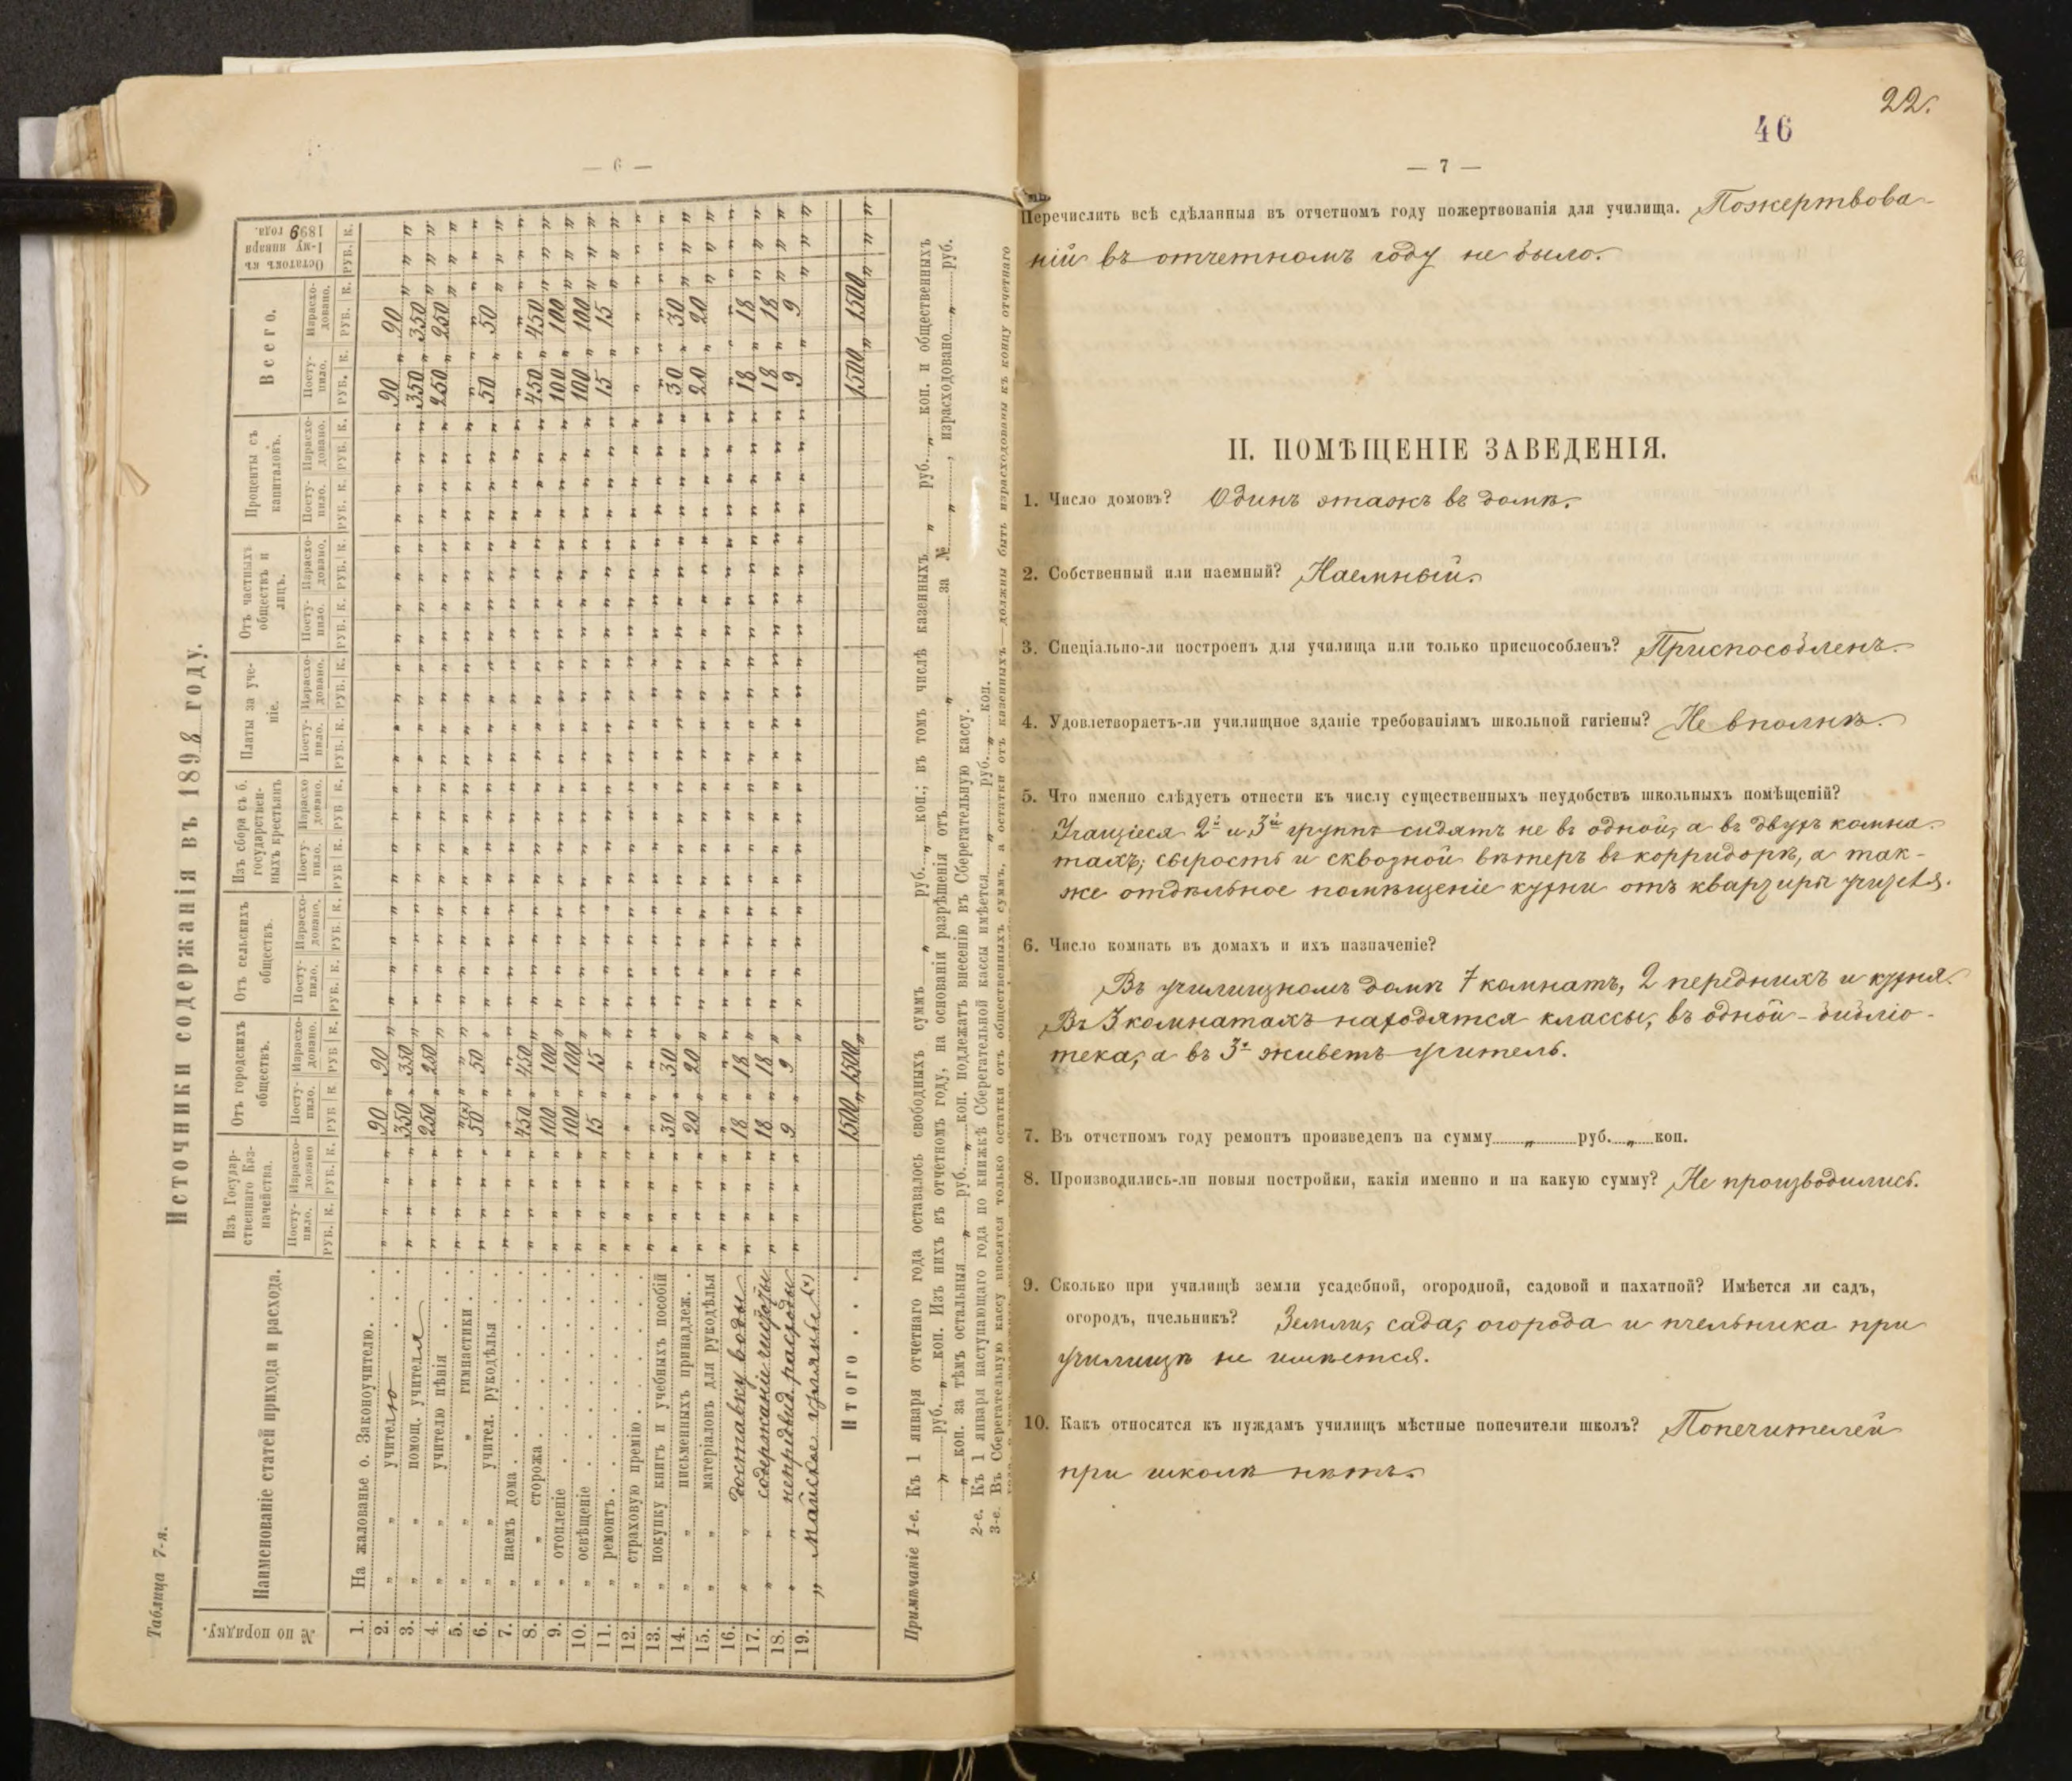 — 6 —
Таблица 7-я.
Источники содержанія въ 1898 году.
№ по порядку.
Наименованіе статей прихода и расхода.
Изъ Государственнаго Казначейства.
Отъ городскихъ обществъ.
Отъ сельскихъ обществъ.
Изъ сбора съ б. государственныхъ крестьянъ
Платы за ученіе.
Отъ частныхъ обществъ и лицъ.
Проценты съ капиталовъ.
Всего.
Остатокъ къ 1-му января 1899 года.
Поступило. Израсходовано.
РУБ. К.
1. На жалованье о. Законоучителю. 90 „ 90 „ 90 „ 90
2. „ „ учителю 350 „ 350 „ 350 „ 350
3. „ „ помощ. учителя 250 „ 250 „ 250 „ 250
4. „ „ учителю пѣнія
5. „ „ „ гимнастики 50 „ 50 „ 50 „ 50
6. „ „ учител. рукодѣлья
7. „ наемъ дома 450 „ 450 „ 450 „ 450
8. „ „ сторожа 100 „ 100 „ 100 „ 100
9. „ отопленіе 100 „ 100 „ 100 „ 100
10. „ освѣщеніе 15 „ 15 „ 15 „ 15
11. „ ремонтъ
12. „ страховую премію
13. „ покупку книгъ и учебныхъ пособій 30 „ 30 „ 30 „ 30
14. „ „ письменныхъ принадлеж. 20 „ 20 „ 20 „ 20
15. „ „ матеріаловъ для рукодѣлья
16. „ „ доставку воды 18 „ 18 „ 18 „ 18
17. „ „ содержаніе чистоты 18 „ 18 „ 18 „ 18
18. „ „ непредвид. расходы 9 „ 9 „ 9 „ 9
19. „ майское гулянье (×)
Итого 1500 „ 1500 „ 1500 „ 1500 „
Примѣчаніе 1-е. Къ 1 января отчетнаго года оставалось свободныхъ суммъ „ руб. „ коп.; въ томъ числѣ казенныхъ „ руб. „ коп. и общественныхъ
„ руб. „ коп. Изъ нихъ въ отчетномъ году, на основаніи разрѣшенія отъ „ за № „ , израсходовано „ руб.
„ коп. за тѣмъ остальныя „ руб. „ коп. подлежатъ внесенію въ Сберегательную кассу.
2-е. Къ 1 января наступающаго года по книжкѣ Сберегательной кассы имѣется „ руб. „ коп.
3-е. Въ Сберегательную кассу вносятся только остатки отъ общественныхъ суммъ, а остатки отъ казенныхъ—должны быть израсходованы къ концу отчетнаго
22.
46
— 7 —
Перечислить всѣ сдѣланныя въ отчетномъ году пожертвованія для училища. Пожертвова-
ній въ отчетномъ году не было.
II. ПОМѢЩЕНІЕ ЗАВЕДЕНІЯ.
1. Число домовъ? Одинъ этажъ въ домѣ.
2. Собственный или наемный? Наемный.
3. Спеціально-ли построенъ для училища или только приспособленъ? Приспособленъ.
4. Удовлетворяетъ-ли училищное зданіе требованіямъ школьной гигіены? Не вполнѣ.
5. Что именно слѣдуетъ отнести къ числу существенныхъ неудобствъ школьныхъ помѣщеній?
Учащіеся 2й и 3й группъ сидятъ не въ одной, а въ двухъ комна-
тахъ; сырость и сквозной вѣтеръ въ корридорѣ, а так-
же отдѣльное помѣщеніе кухни отъ квартиры учителя.
6. Число комнатъ въ домахъ и ихъ назначеніе?
Въ училищномъ домѣ 7 комнатъ, 2 переднихъ и кухня.
Въ 3 комнатахъ находятся классы, въ одной - библіо-
тека, а въ 3х живетъ учитель.
7. Въ отчетномъ году ремонтъ произведенъ на сумму „ руб. „ коп.
8. Производились-ли новыя постройки, какія именно и на какую сумму? Не производились.
9. Сколько при училищѣ земли усадебной, огородной, садовой и пахатной? Имѣется ли садъ,
огородъ, пчельникъ? Земли, сада, огорода и пчельника при
училищѣ не имѣется.
10. Какъ относятся къ нуждамъ училищъ мѣстные попечители школъ? Попечителей
при школѣ нѣтъ.